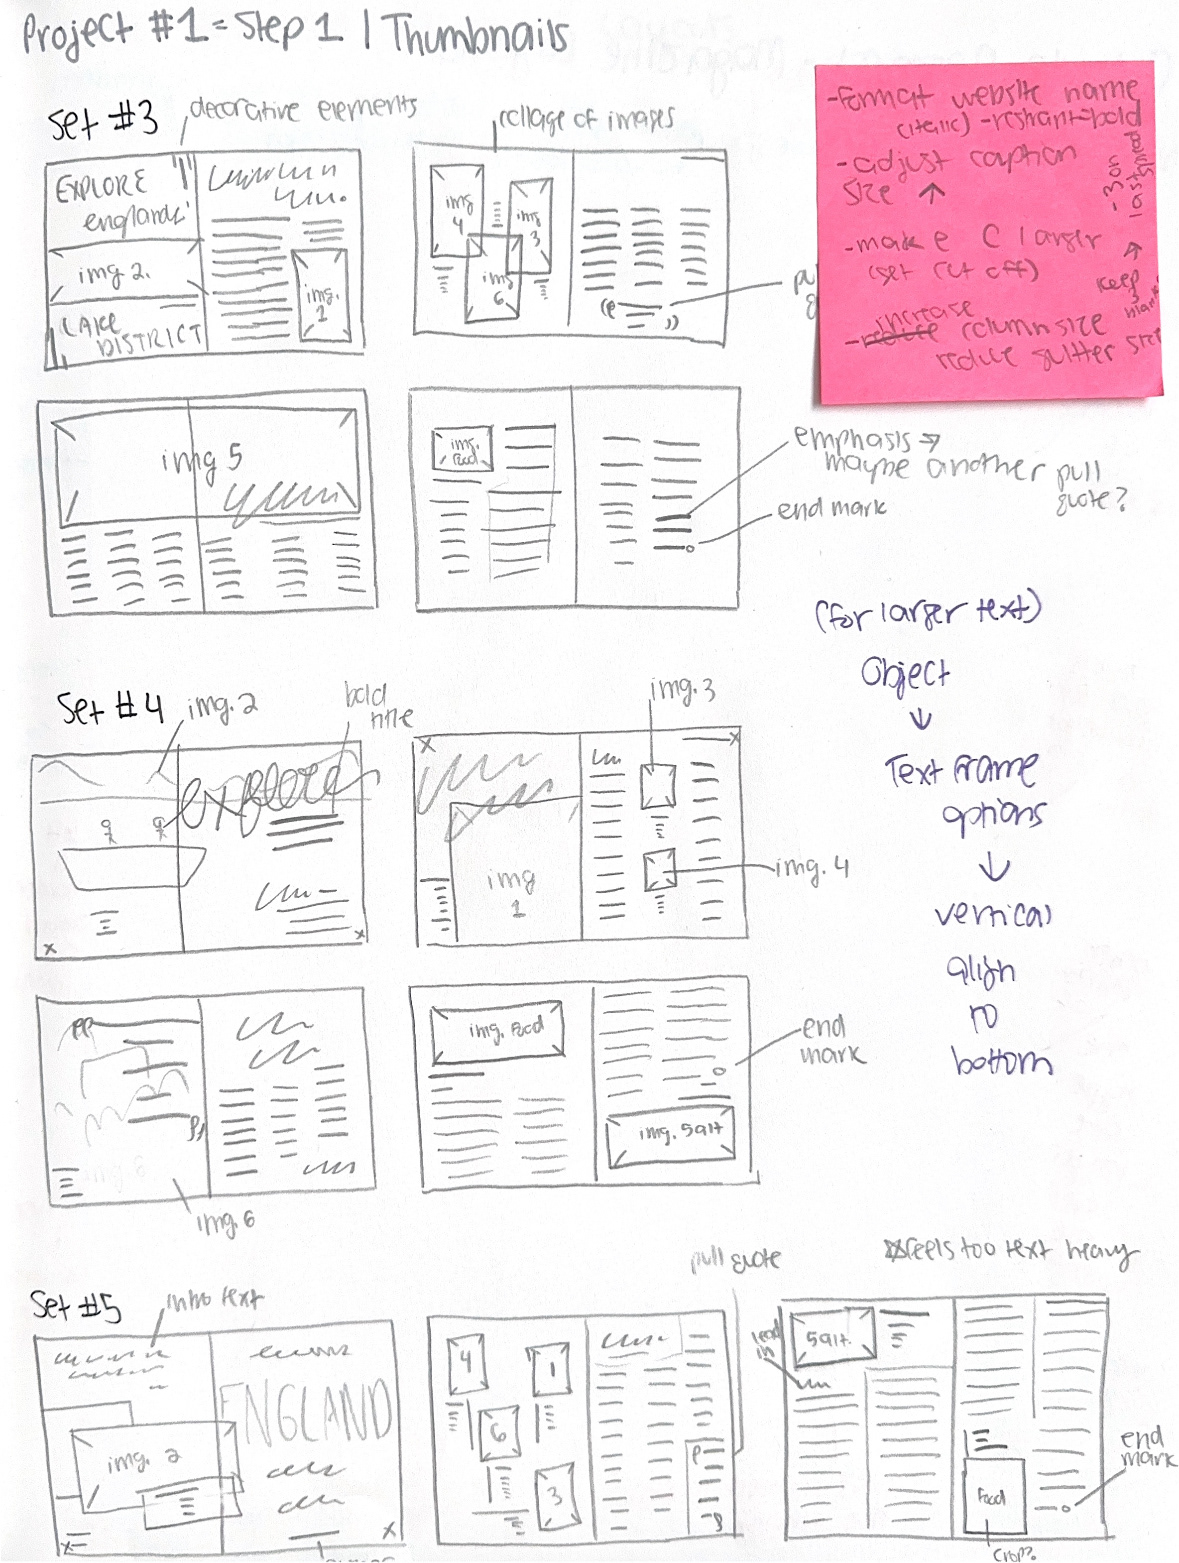 Project #1 = Step 1 | Thumbnails
Set #3
decorative elements
collage of images
EXPLORE
englands'
img 2.
LAKE
DISTRICT
img.
1
img
4
img
3
img
6
-format website name
(italic)
bold
-adjust caption
size ↑
-3 on
last spread
-make C larger
(get cut off)
keep
increase
-reduce column size
reduce gutter size
img 5
img.
food
emphasis →
maybe another pull
quote?
end mark
(for larger text)
Object
↓
Text Frame
options
↓
vertical
align
to
bottom
Set #4
img. 2
bold
title
explore
img. 3
img
1
img. 4
img. 6
img. food
img. salt
end
mark
feels too text heavy
Set #5
intro text
img. 2
ENGLAND
pull quote
4
1
6
3
salt.
food
crop?
end
mark